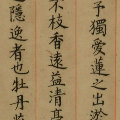 予獨愛蓮之出淤
不枝香遠益清亭
隱逸者也牡丹